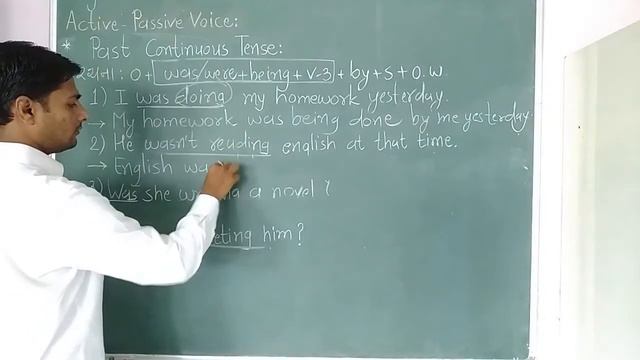 Active-Passive Voice:
* Past Continuous Tense:
રચના: O + was/were + being + V-3 + by + S + O.W.
1) I was doing my homework yesterday.
→ My homework was being done by me yesterday.
2) He wasn't reading english at that time.
→ English wa
Was she a novel?
eting him?